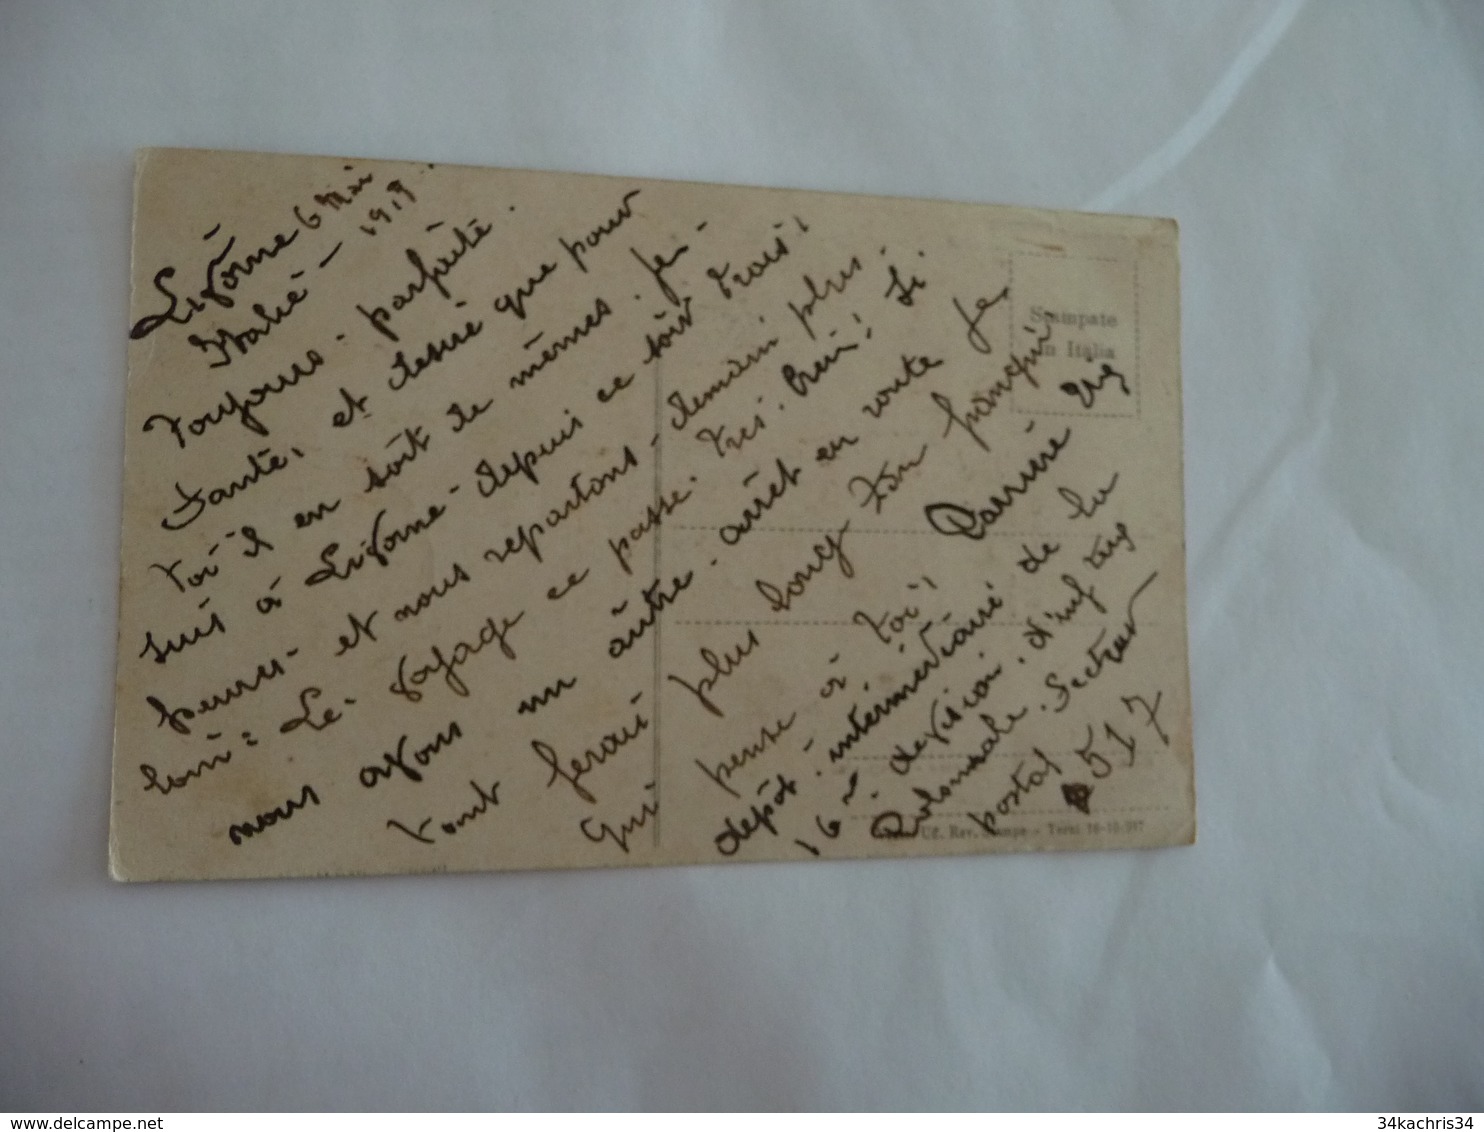 Livorne 6 Mai
Italie - 1919
Toujours. parfaite.
Santé, et desire que pour
Toi il en soit de mêmes. Je
suis à Livorne - depuis ce soir trois
heures - et nous repartons - demain plus.
loin: Le. voyage ce passe. tres. bien! Si.
nous avons un autre. arret en route Je,
vont ferait plus long Ton frangin
Qui pense à toi,
Carrive
depôt. intermediaire de la
16e. devision. d'inf
Colonniale. Secteur
postal 517
Stampate
in Italia
Uf. Rev. Stampe - Terni
34kachris34